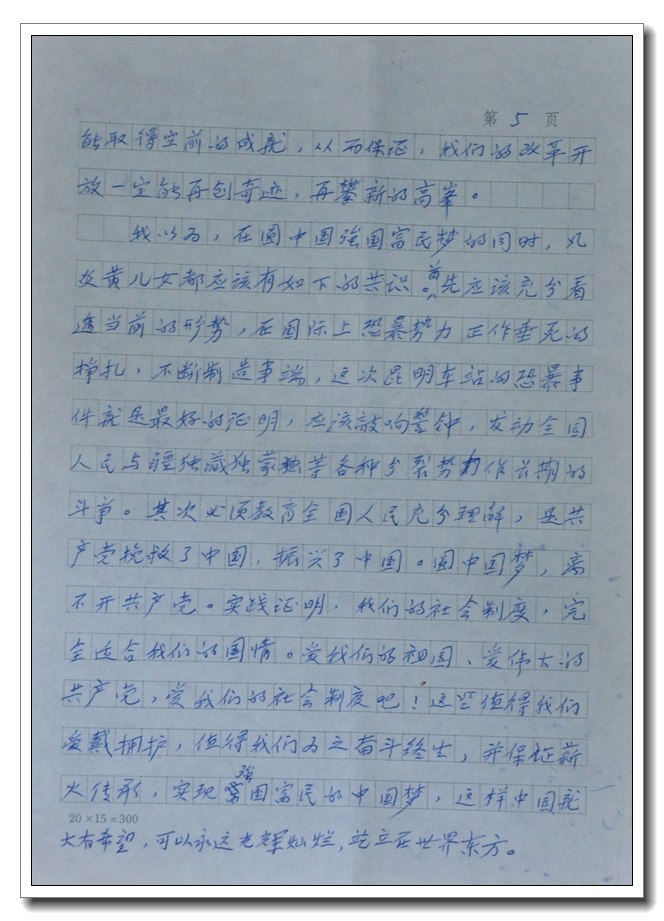 第 5 页
能取得空前的成就，从而保证，我们的改革开
放一定能再创奇迹，再攀新的高峯。
我以为，在圆中国强国富民梦的同时，凡
炎黄儿女都应该有如下的共识。首先应该充分看
透当前的形势，在国际上恐暴势力正作垂死的
挣扎，不断制造事端，这次昆明车站的恐暴事
件就是最好的证明，应该敲响警钟，发动全国
人民与疆独藏独蒙独等各种分裂势力作长期的
斗争。其次必须教育全国人民充分理解，是共
产党挽救了中国，振兴了中国。圆中国梦，离
不开共产党。实践证明，我们的社会制度，完
全适合我们的国情。爱我们的祖国、爱伟大的
共产党，爱我们的社会制度吧！这些值得我们
爱戴拥护，值得我们为之奋斗终生，并保证薪
火传承，实现强国富民的中国梦，这样中国就
20×15=300
大有希望，可以永远光辉灿烂，屹立在世界东方。